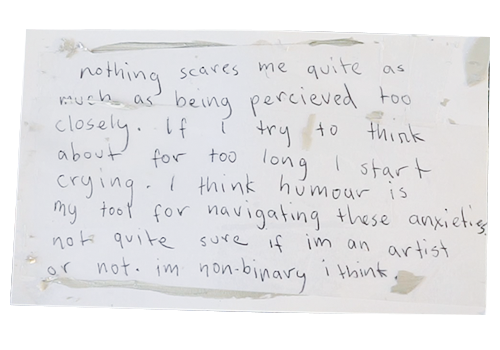 nothing scares me quite as
much as being percieved too
closely. If I try to think
about for too long I start
crying. I think humour is
my tool for navigating these anxieties
not quite sure if im an artist
or not. im non-binary i think.